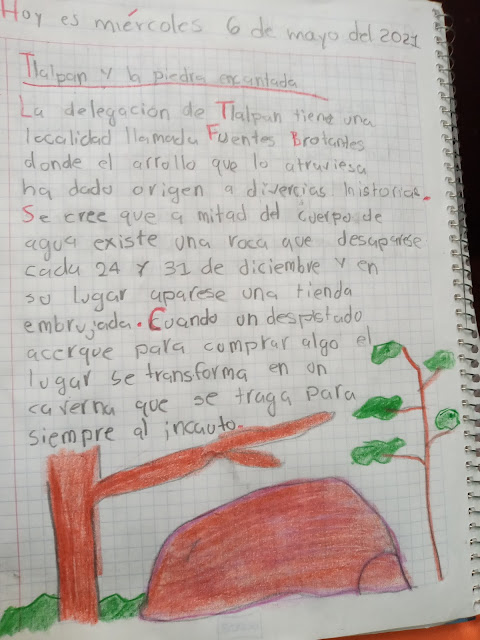 Hoy es miércoles 6 de mayo del 2021
Tlalpan y la piedra encantada
La delegación de Tlalpan tiene una
localidad llamada Fuentes Brotantes
donde el arrollo que lo atraviesa
ha dado origen a divercias historias.
Se cree que a mitad del cuerpo de
agua existe una roca que desaparese
cada 24 y 31 de diciembre y en
su lugar aparese una tienda
embrujada. Cuando un despistado
acerque para comprar algo el
lugar se transforma en un
caverna que se traga para
siempre al incauto.